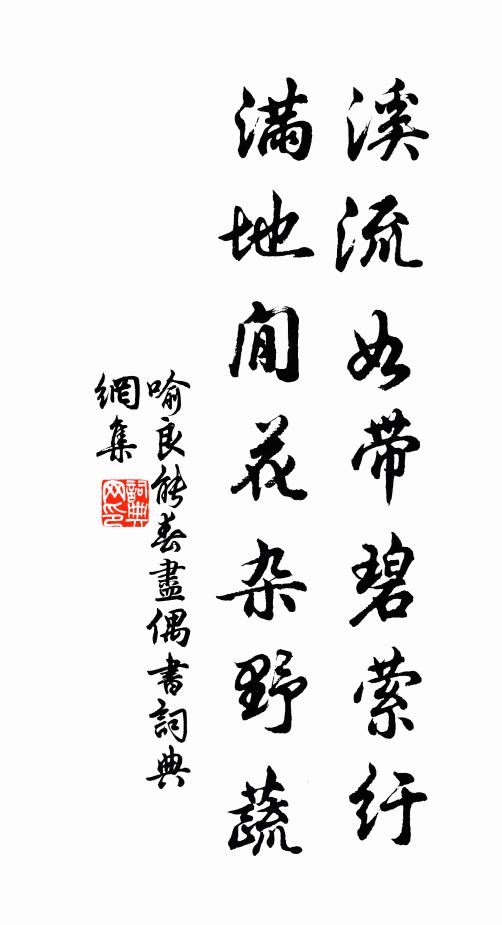 溪流如带碧萦纡
满地闲花杂野蔬
喻良能春盡偶書詞典
網集
詞典
网印